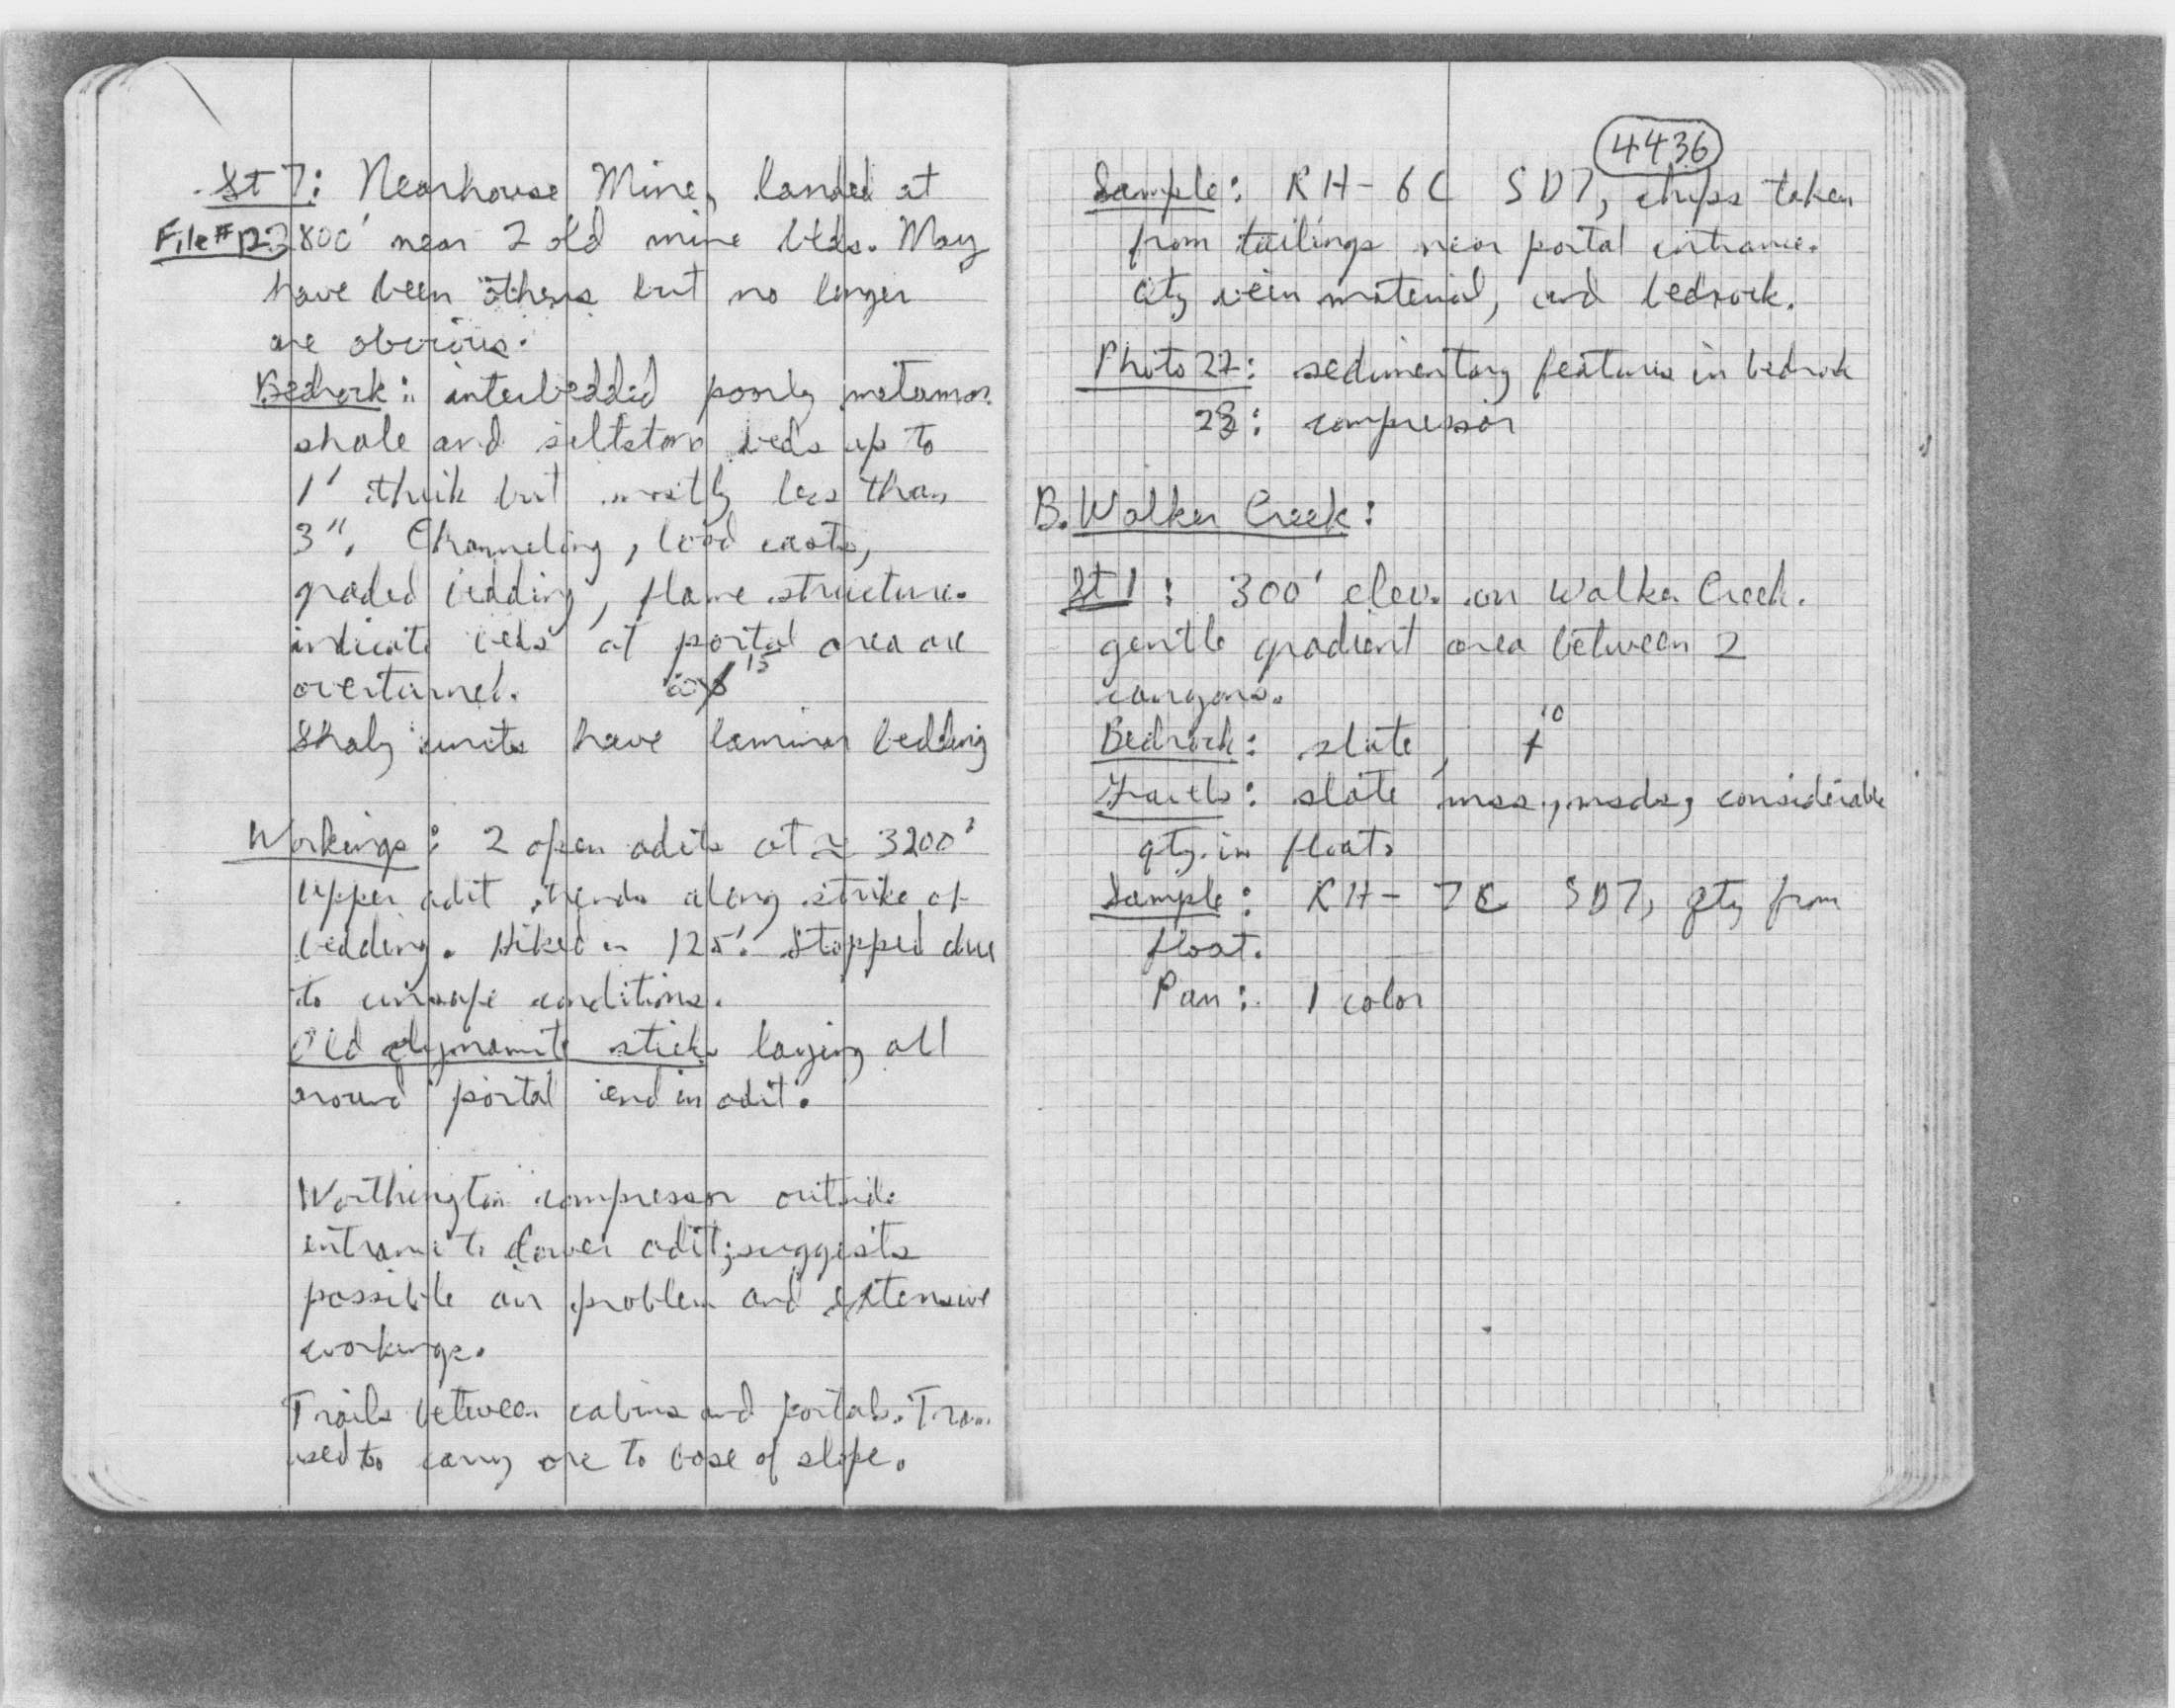 St 7: Nearhouse Mine, landed at
File # 123 800' near 2 old mine blds. May
have been others but no longer
are obvious.
Bedrock: interbedded poorly metamor.
shale and siltstone beds up to
1' thick but mostly less than
3". Channeling, load casts,
graded bedding, flame structure.
indicate beds at portal area are
overturned. 15
Shaly units have laminar bedding
Workings: 2 open adits at ≈ 3200'
Upper adit trends along strike of
bedding. Hiked in 125'. Stopped due
to unsafe conditions.
Old dynamite sticks laying all
around portal and in adit.
Worthington compressor outside
entrance to lower adit; suggests
possible air problem and extensive
workings.
Trails between cabins and portals. Tram
used to carry ore to base of slope.
4436
Sample: RH-6C SD7, chips taken
from tailings near portal entrance.
qtz vein material, and bedrock.
Photo 27: sedimentary features in bedrock
28: compressor
B. Walker Creek:
St 1: 300' elev. on Walker Creek.
gentle gradient area between 2
canyons.
Bedrock: slate, 10
slate, mss, msds, considerable
qtz. in float.
Sample: RH-7C SD7, qtz from
float.
Pan: 1 color